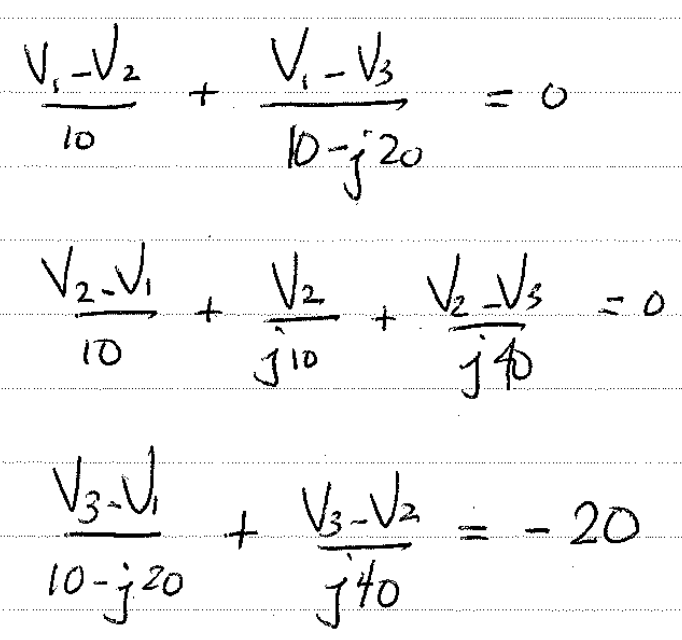 (V₁-V₂)/10 + (V₁-V₃)/(10-j20) = 0
(V₂-V₁)/10 + V₂/j10 + (V₂-V₃)/j40 = 0
(V₃-V₁)/(10-j20) + (V₃-V₂)/j40 = -20